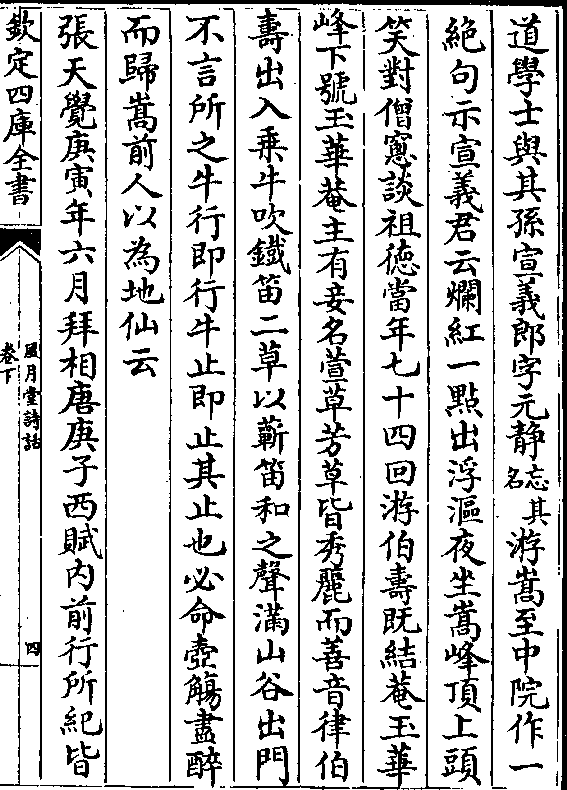 道學士與其孫宣義郎字元静忘其名游嵩至中院作一
絶句示宣義君云爛紅一點出浮漚夜坐嵩峰頂上頭
笑對僧窻談祖徳當年七十四回游伯壽既結菴玉華
峰下號玉華菴主有妾名萱草芳草皆秀麗而善音律伯
壽出入乗牛吹鐵笛二草以蘄笛和之聲滿山谷出門
不言所之牛行即行牛止即止其止也必命壺觴盡醉
而歸嵩前人以為地仙云
張天覺庚寅年六月拜相唐庚子西賦内前行所紀皆
欽定四庫全書
風月堂詩話
卷下
四